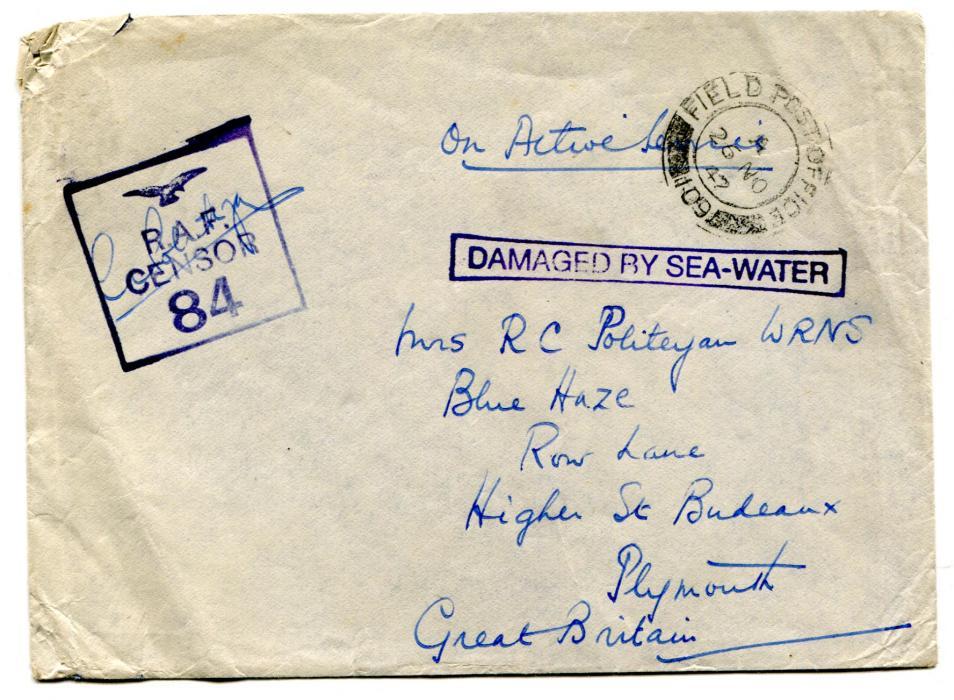 On Active Service
FIELD POST OFFICE
A
26 NO
42
601
R.A.F.
CENSOR
84
DAMAGED BY SEA-WATER
Mrs R C Politeyan WRNS
Blue Haze
Row Lane
Higher St Budeaux
Plymouth
Great Britain